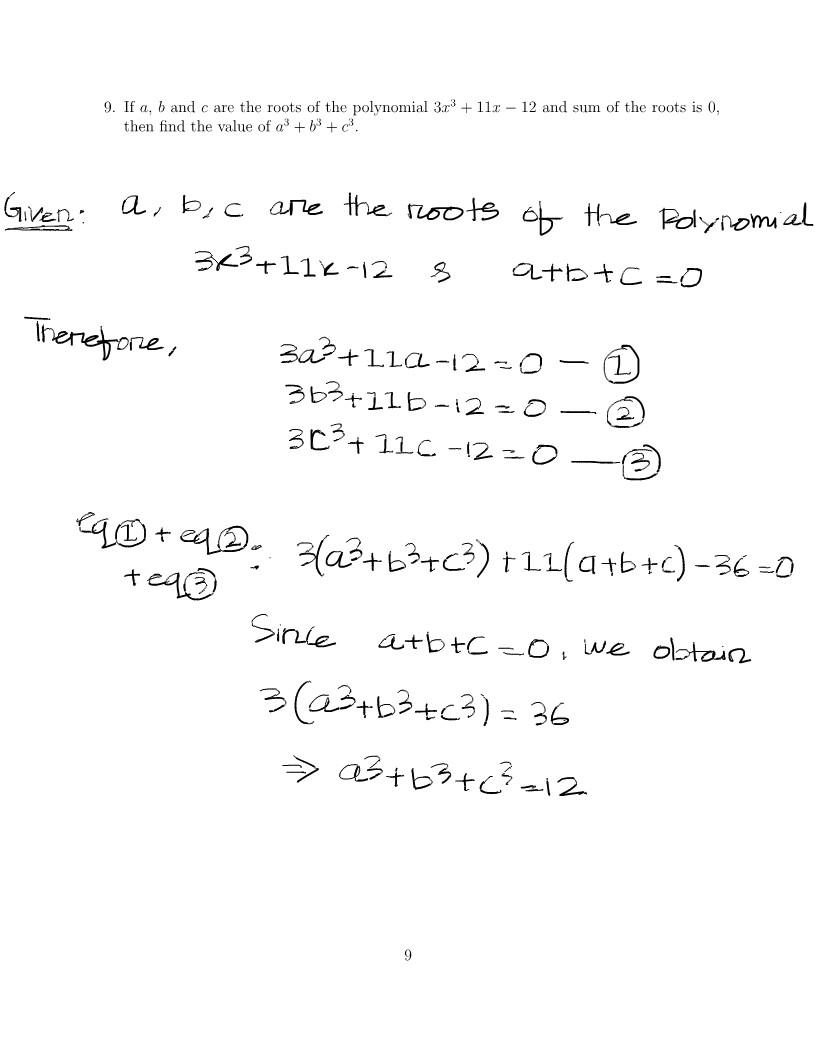 9. If a, b and c are the roots of the polynomial 3x³ + 11x − 12 and sum of the roots is 0,
then find the value of a³ + b³ + c³.
Given: a, b, c are the roots of the Polynomial
3x³+11x-12 & a+b+c=0
Therefore,
3a³+11a-12=0 — ①
3b³+11b-12=0 — ②
3c³+11c-12=0 — ③
eq①+eq②
+eq③ : 3(a³+b³+c³)+11(a+b+c)-36=0
Since a+b+c=0, we obtain
3(a³+b³+c³)=36
⇒ a³+b³+c³=12
9